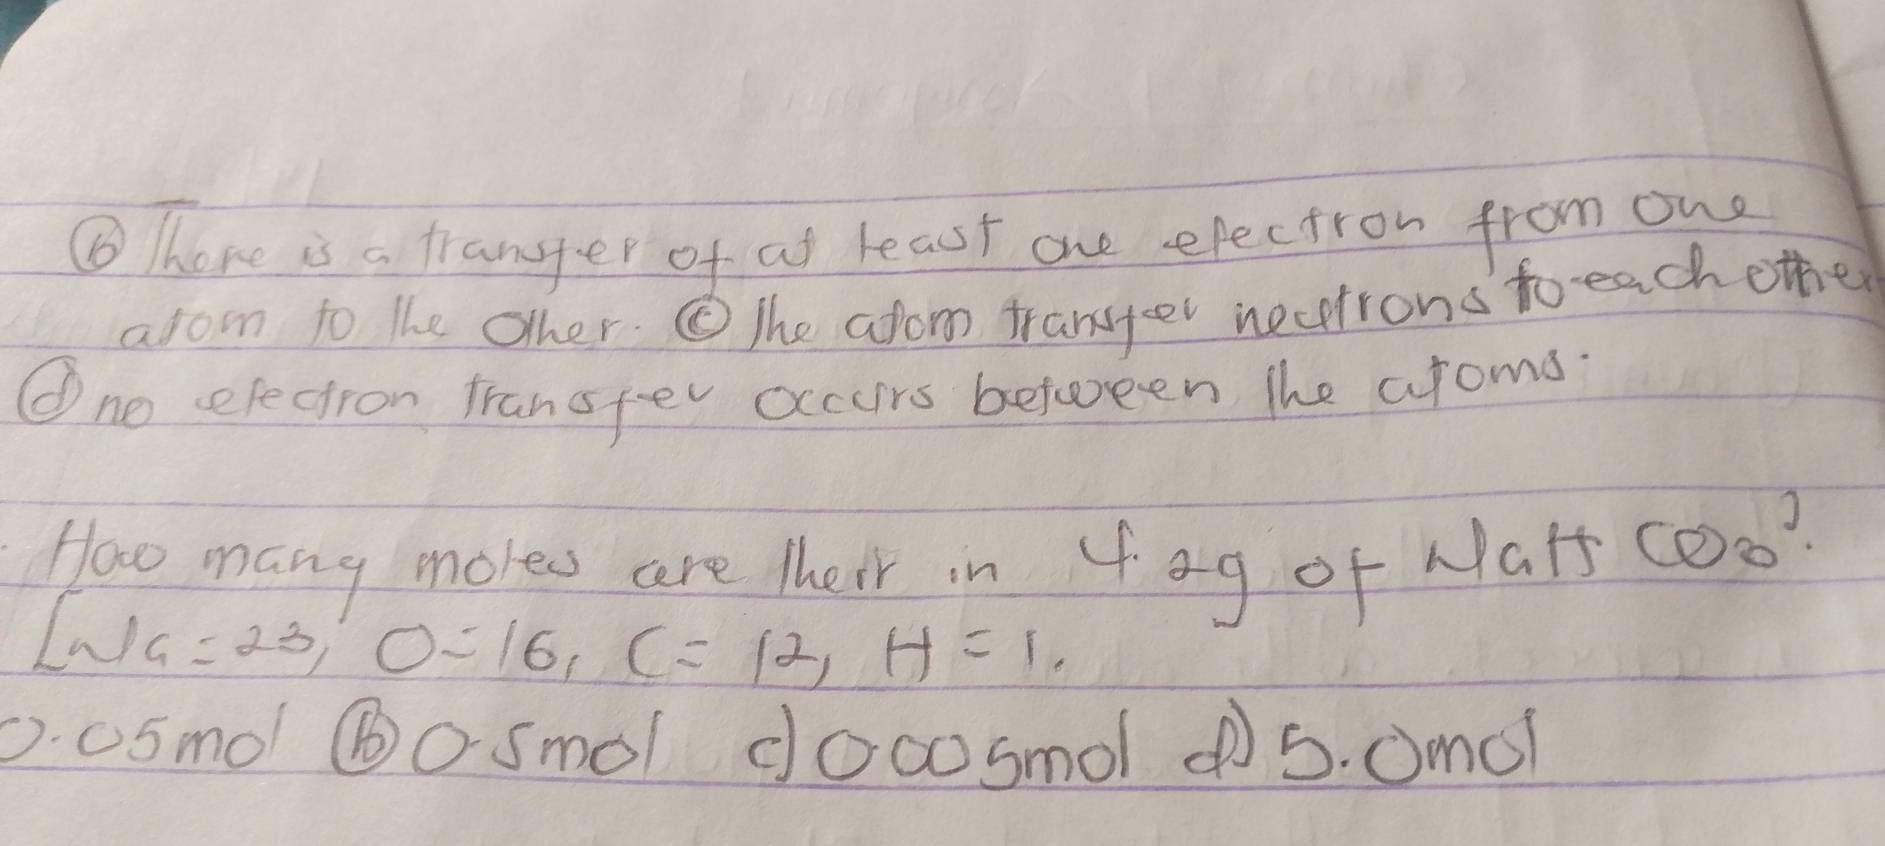 (b) There is a transfer of at least one electron from one
atom to the other. (c) The atom transfer neutrons to each other
(d) no electron transfer occurs between the atoms.
How many moles are their in 4.2g of NaH CO3?
[Na = 23, O = 16, C = 12, H = 1.
0.05mol (b) 0.5mol c) 0.005mol d) 5.0mol